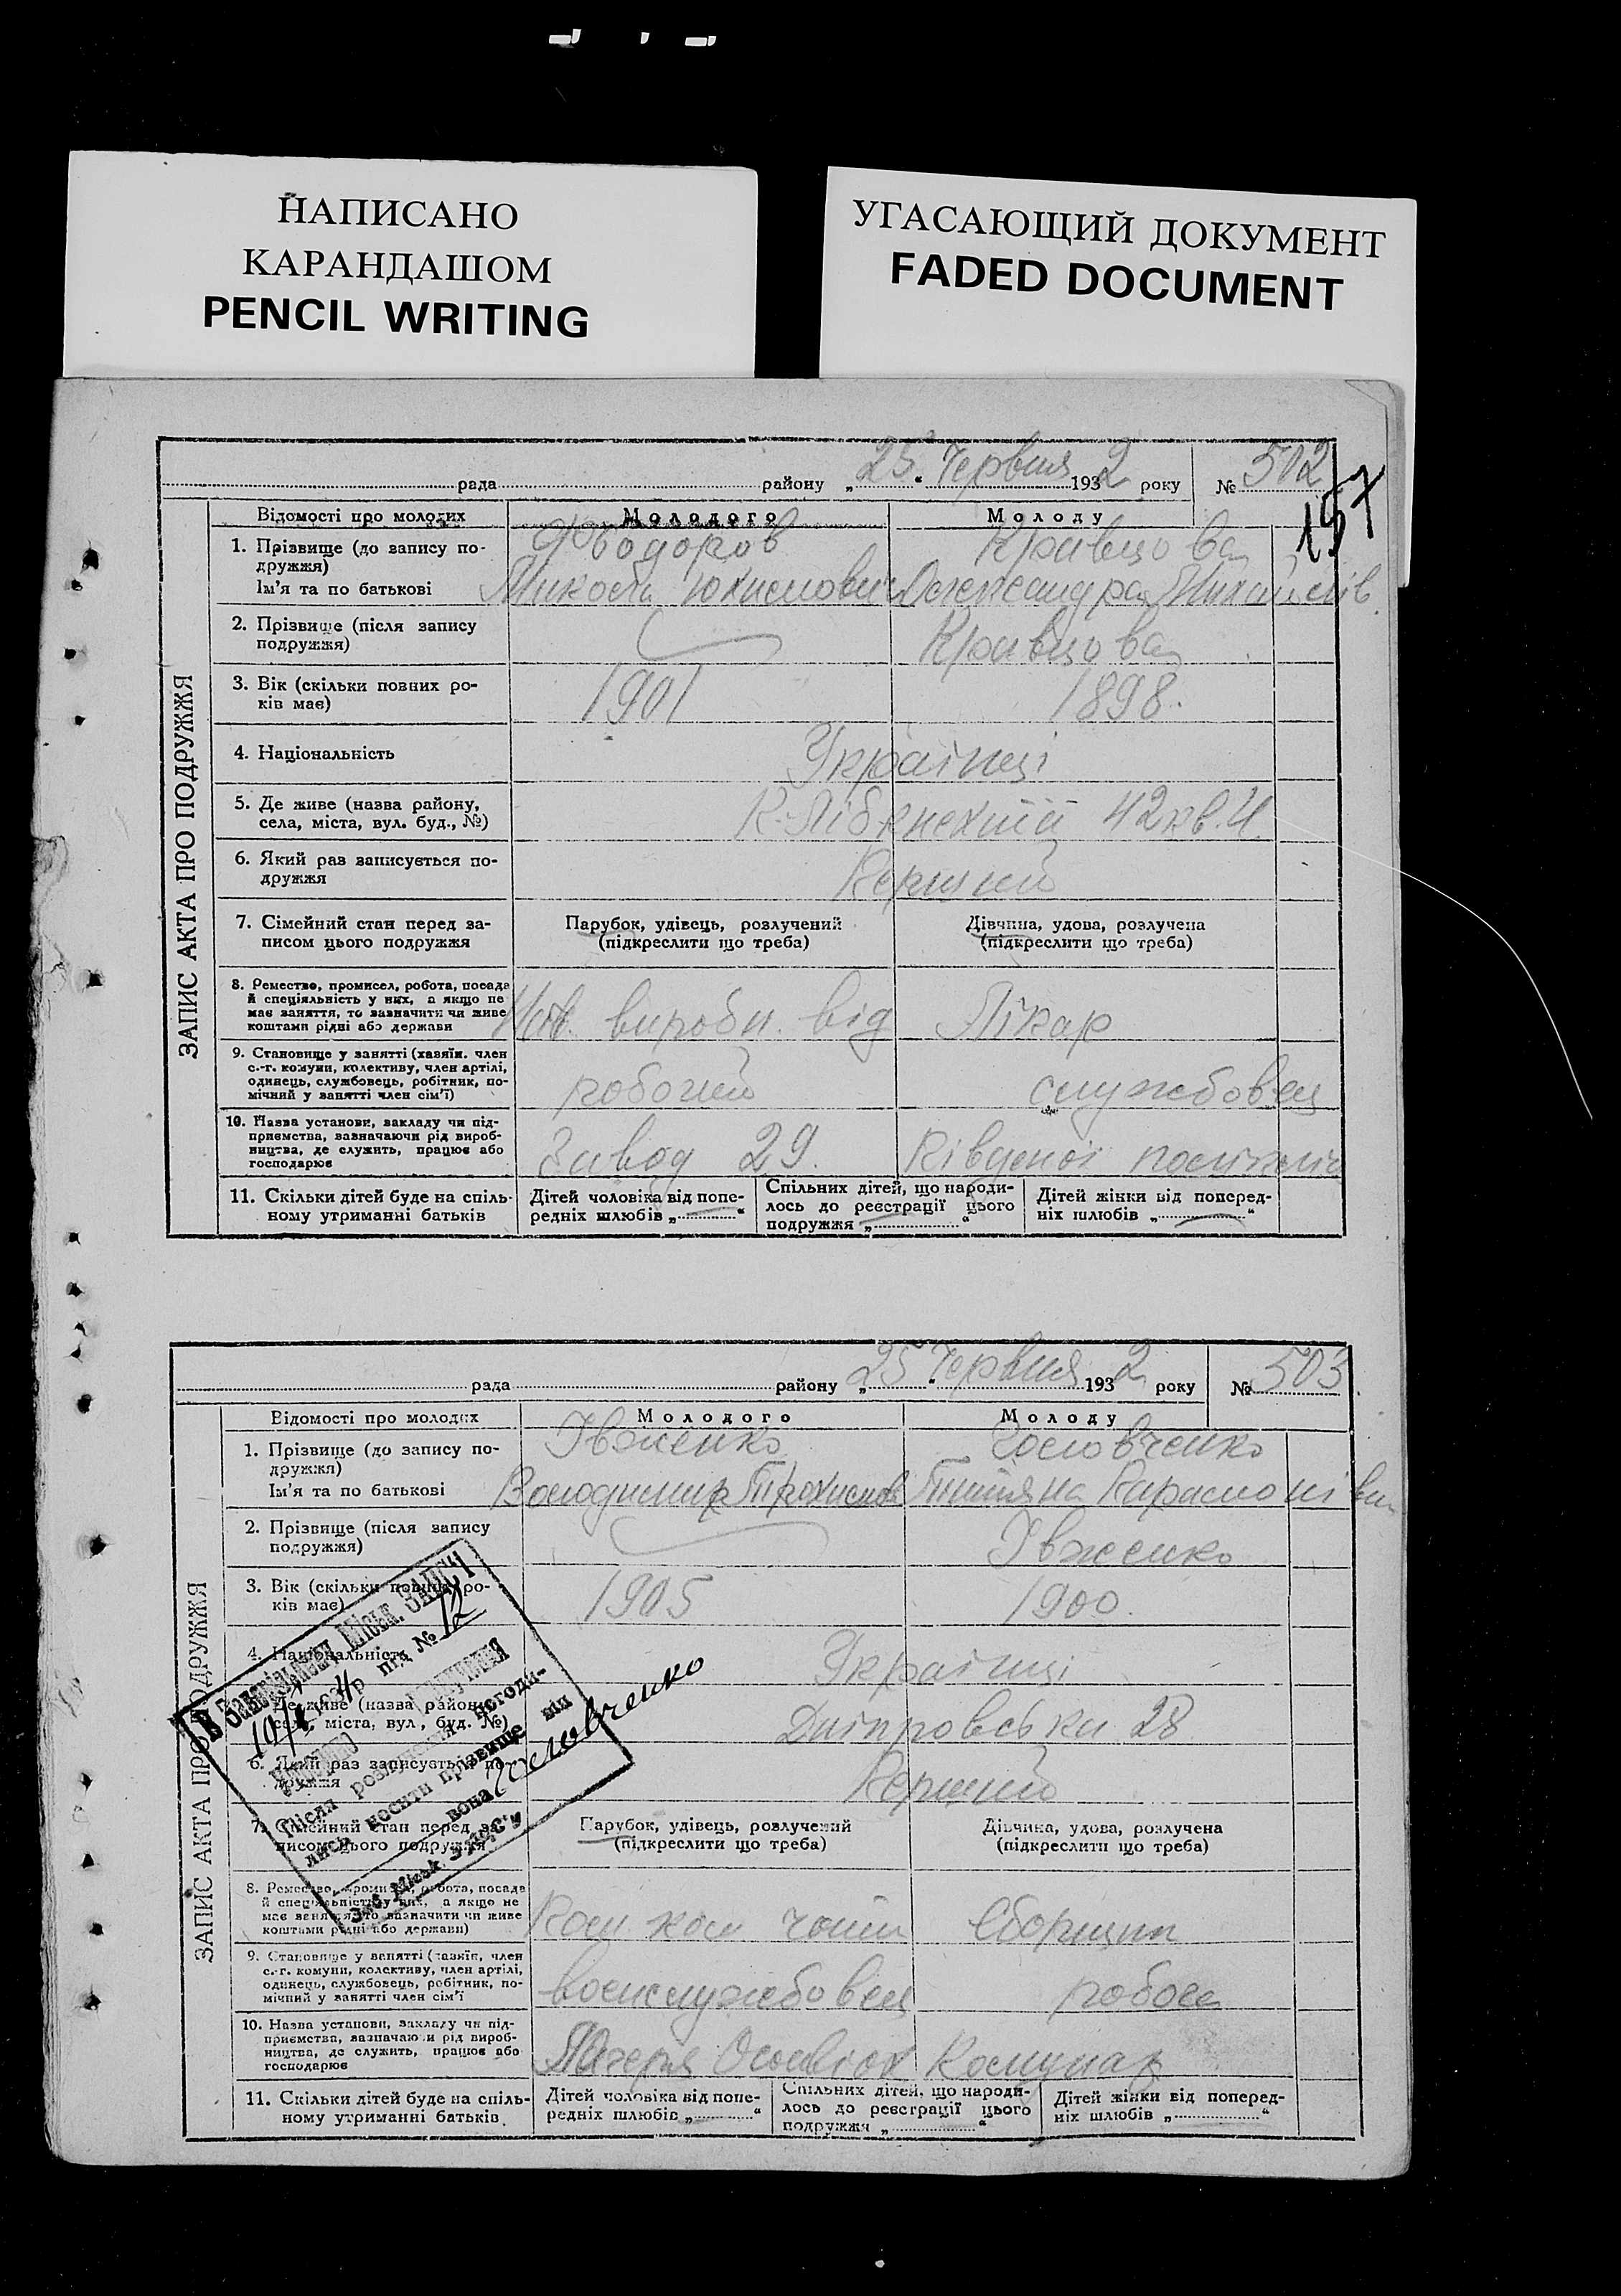 НАПИСАНО
КАРАНДАШОМ
PENCIL WRITING
УГАСАЮЩИЙ ДОКУМЕНТ
FADED DOCUMENT
рада району „25“ Червня 1932 року № 502
157
ЗАПИС АКТА ПРО ПОДРУЖЖЯ
Відомості про молодих Молодого Молоду
1. Прізвище (до запису по- Кравцова
дружжя)
Ім'я та по батькові Микола Юхимович Олександра Михайлів
2. Прізвище (після запису Кравцова
подружжя)
3. Вік (скільки повних ро- 1901 1898.
ків має)
4. Національність Українці
5. Де живе (назва району, К. Лібкнехтій 42 кв. 4.
села, міста, вул. буд., №)
6. Який раз записується по- Перший
дружжя
7. Сімейний стан перед за- Парубок, удівець, розлучений Дівчина, удова, розлучена
писом цього подружжя (підкреслити що треба) (підкреслити що треба)
8. Ремество, промисел, робота, посада
й спеціяльність у них, а якщо не
має заняття, то зазначити чи живе вироби. від Лікар
коштами рідні або держави
9. Становище у занятті (хазяїн. член
с.-г. комуни, колективу, член артілі,
одинець, службовець, робітник, по- робочий службовец
мічний у занятті член сім'ї)
10. Назва установи, закладу чи під-
приємства, зазначаючи рід вироб-
ництва, де служить, працює або Завод 29.
господарює
11. Скільки дітей буде на спіль- Дітей чоловіка від попе- Спільних дітей, що народи- Дітей жінки від поперед-
ному утриманні батьків редніх шлюбів „ “ лось до реєстрації цього ніх шлюбів „ “
подружжя „ “
рада району „25“ Червня 1932 року № 503.
ЗАПИС АКТА ПРО ПОДРУЖЖЯ
Відомості про молодих Молодого Молоду
1. Прізвище (до запису по- Івженко Головченко
дружжя)
Ім'я та по батькові Володимир Трохимов Титяна
2. Прізвище (після запису Івженко
подружжя)
3. Вік (скільки повних ро- 1905 1900.
ків має)
4. Національність Українці
5. Де живе (назва району, Дніпровська 28
села, міста, вул., буд. №)
6. Який раз записується по- Перший
дружжя
7. Сімейний стан перед за- Парубок, удівець, розлучений Дівчина, удова, розлучена
писом цього подружжя (підкреслити що треба) (підкреслити що треба)
8. Ремество, промисел, робота, посада
й спеціяльність у них, а якщо не
має заняття, то зазначити чи живе Сборщик
коштами рідні або держави)
9. Становище у занятті (хазяїн, член
с.-г. комуни, колективу, член артілі,
одинець, службовець, робітник, по- воєнслужбовец
мічний у занятті член сім'ї
10. Назва установи, закладу чи під-
приємства, зазначаючи рід вироб-
ництва, де служить, працює або Комунар
господарює
11. Скільки дітей буде на спіль- Дітей чоловіка від попе- Спільних дітей, що народи- Дітей жінки від поперед-
ному утриманні батьків. редніх шлюбів „ “ лось до реєстрації цього ніх шлюбів „ “
подружжя „ “
під № 12
Після розлучення погоди-
лися носити прізвище він
вона Головченко